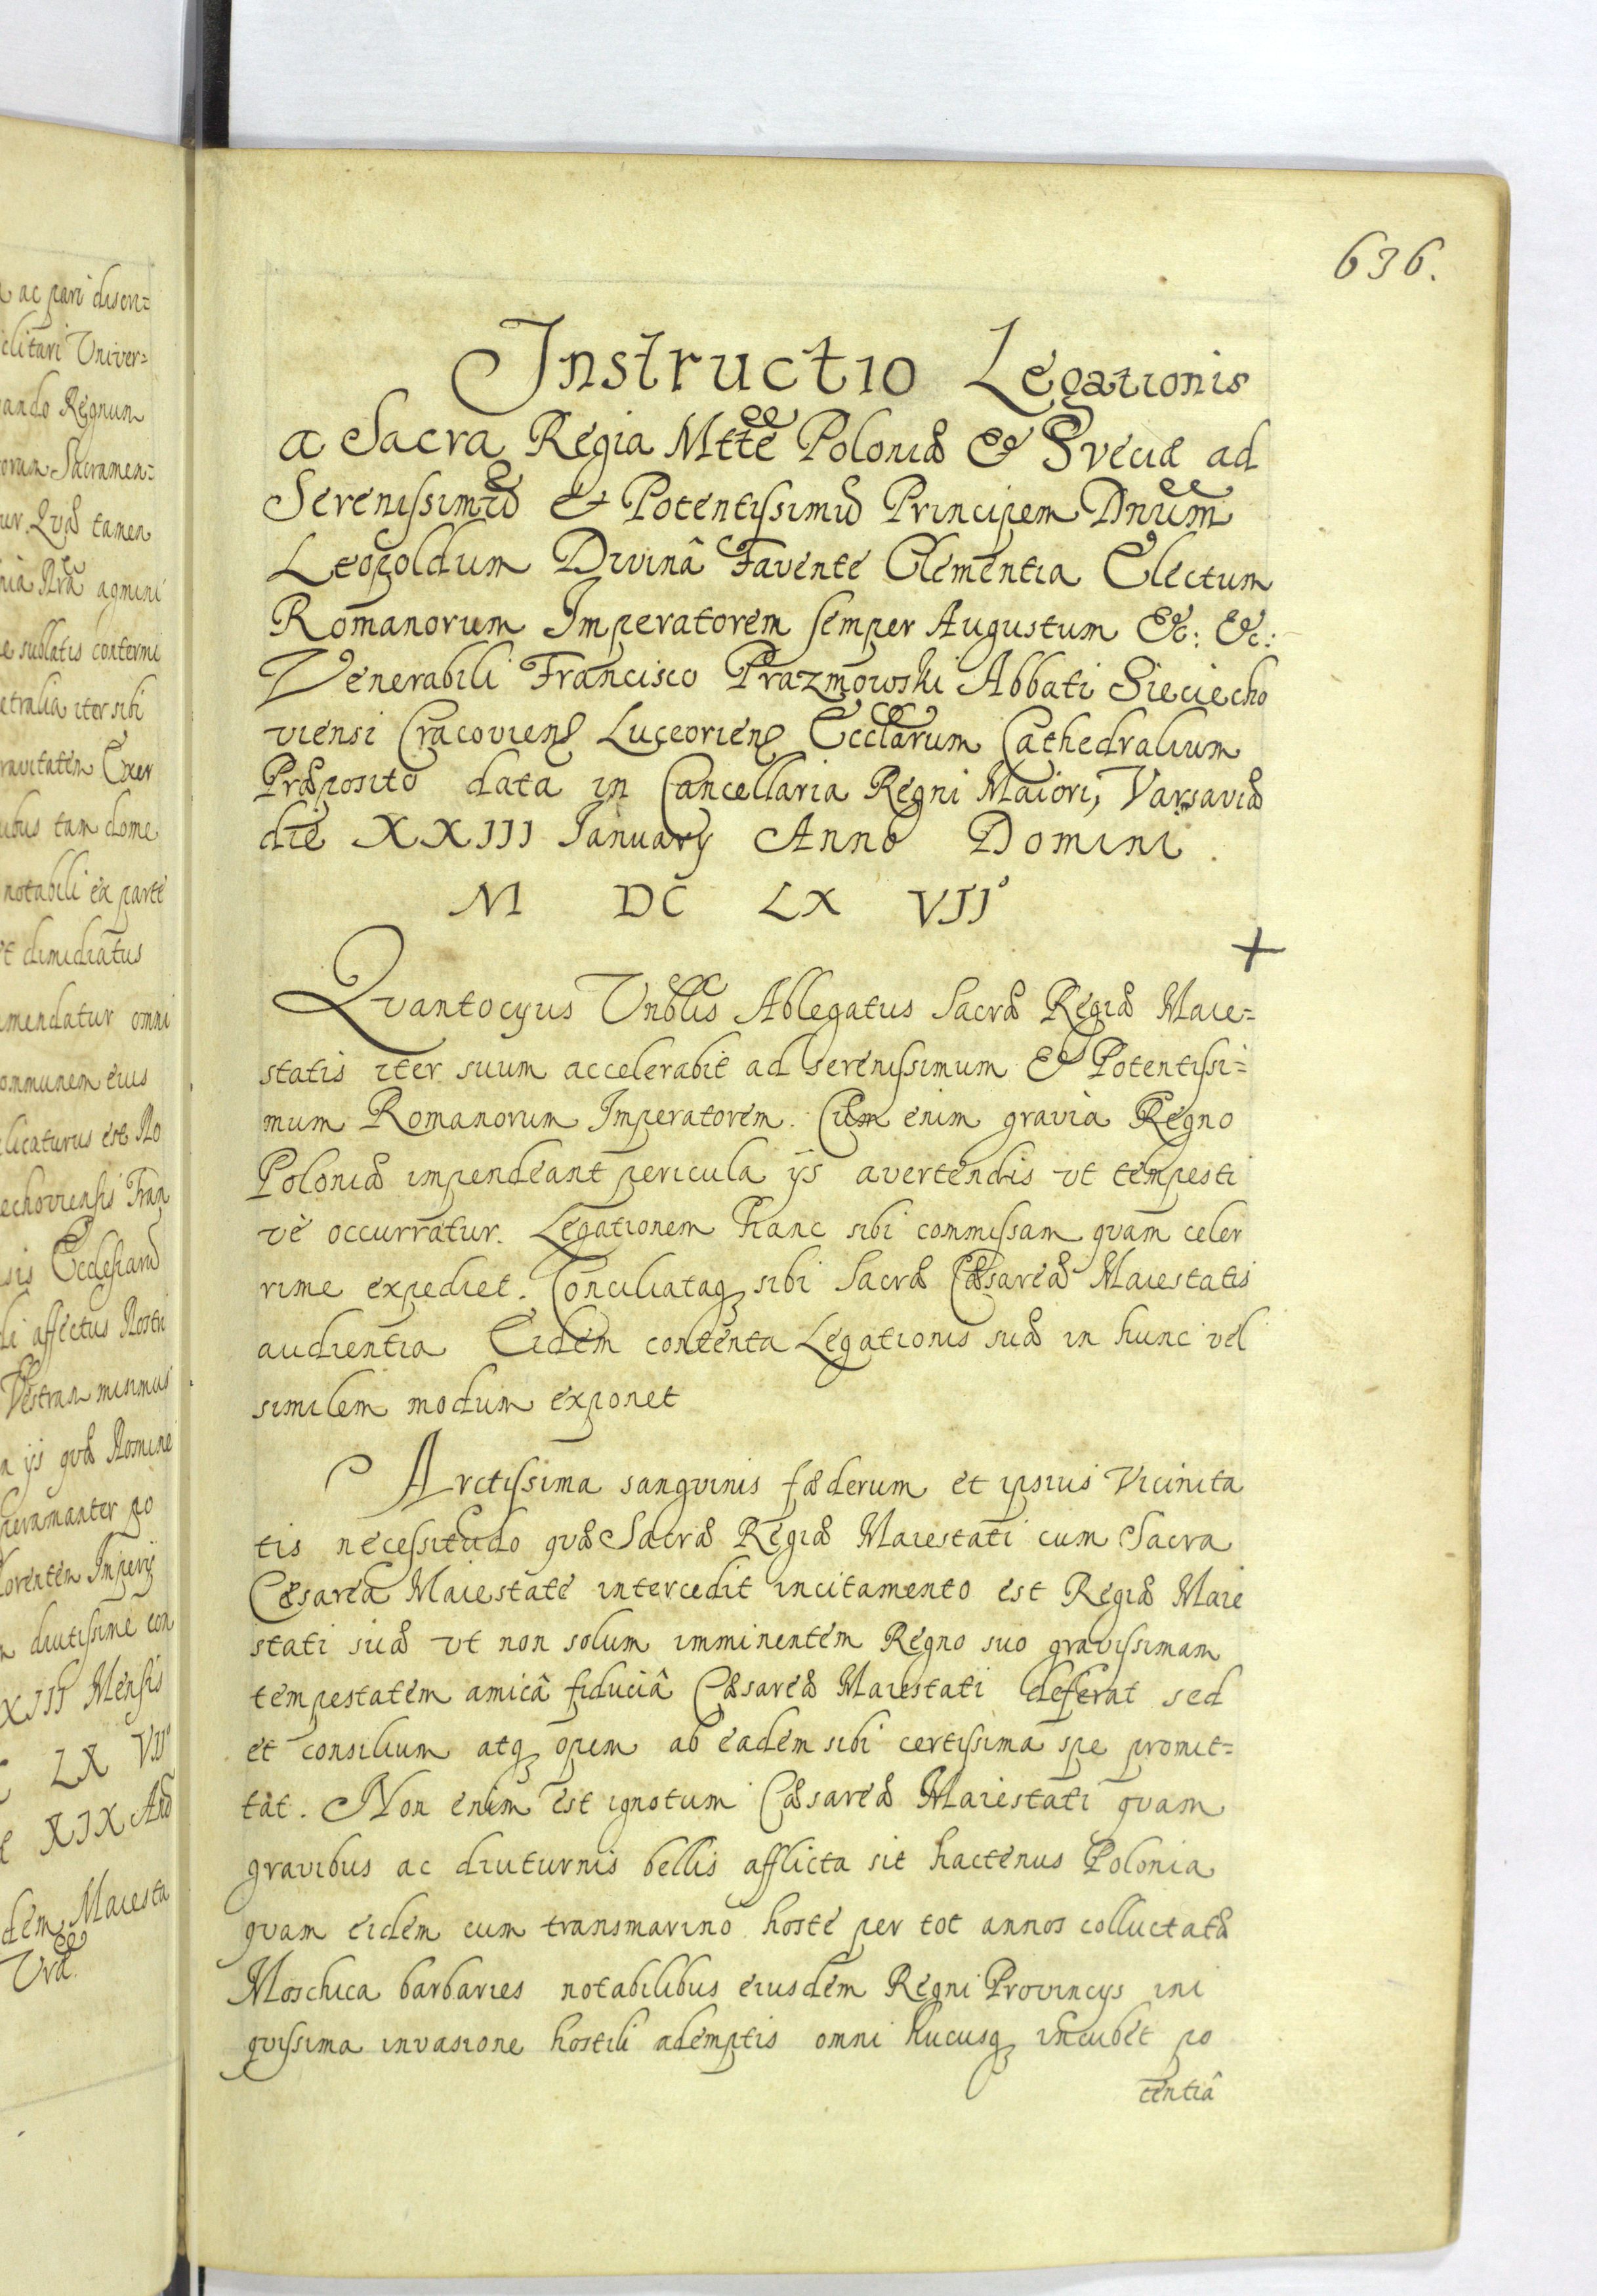 a ac pari discri=
clitari Univer=
ando Regnum
orum Sacramen=
ur Quæ tamen
nia Nra agmini
e sublatis contermi
etralia iter sibi
ravitatem Exer
ubus tam dome
notabili ex parte
t dimidiatus
mendatur omni
ommunem eius
licaturus est No
echoviensis Fran
sis Ecclesiarū
di affectus Nostri
Vestram minimus
a ijs quæ Nomine
peramanter po
lorentem Imperij
n diutissime con
XIII Mensis
LX VII°
XIX And
dem Maiesta
Vra.
636.
Instructio Legationis
a Sacra Regia Mtte Poloniæ & Sveciæ ad
Serenissimū & Potentissimū Principem Dnum
Leopoldum Divinâ Favente Clementia Electum
Romanorum Imperatorem semper Augustum &c: &c:
Venerabili Francisco Prazmowski Abbati Sieciecho
viensi Cracovien Luceorien Ecclarum Cathedralium
Præposito data in Cancellaria Regni Maiori, Varsaviæ
die XXIII Ianuarij Anno Domini.
M DC LX VII°
Qvantocyus Vnblis Ablegatus Sacræ Regiæ Maie=
statis iter suum accelerabit ad Serenissimum & Potentissi=
mum Romanorum Imperatorem. Cum enim gravia Regno
Poloniæ impendeant pericula ijs avertendis vt tempesti
vè occurratur. Legationem hanc sibi commissam qvam celer
rime expediet. Conciliataq, sibi Sacræ Cæsareæ Maiestatis
audientia Eidem contenta Legationis suæ in hunc vel
similem modum exponet
Arctissima sangvinis fæderum et ipsius Vicinita
tis necessitudo qvæ Sacræ Regiæ Maiestati cum Sacra
Cæsarea Maiestate intercedit incitamento est Regiæ Maie
stati suæ vt non solum imminentem Regno suo gravissimam
tempestatem amicâ fiduciâ Cæsareæ Maiestati deferat sed
et consilium atq, opem ab eadem sibi certissima spe promit=
tat. Non enim est ignotum Cæsareæ Maiestati qvam
gravibus ac diuturnis bellis afflicta sit hactenus Polonia
qvam eidem cum transmarino hoste per tot annos colluctatæ
Moschica barbaries notabilibus eiusdem Regni Provincijs ini
qvissima invasione hostili ademptis omni hucusq, incubet po
tentiâ